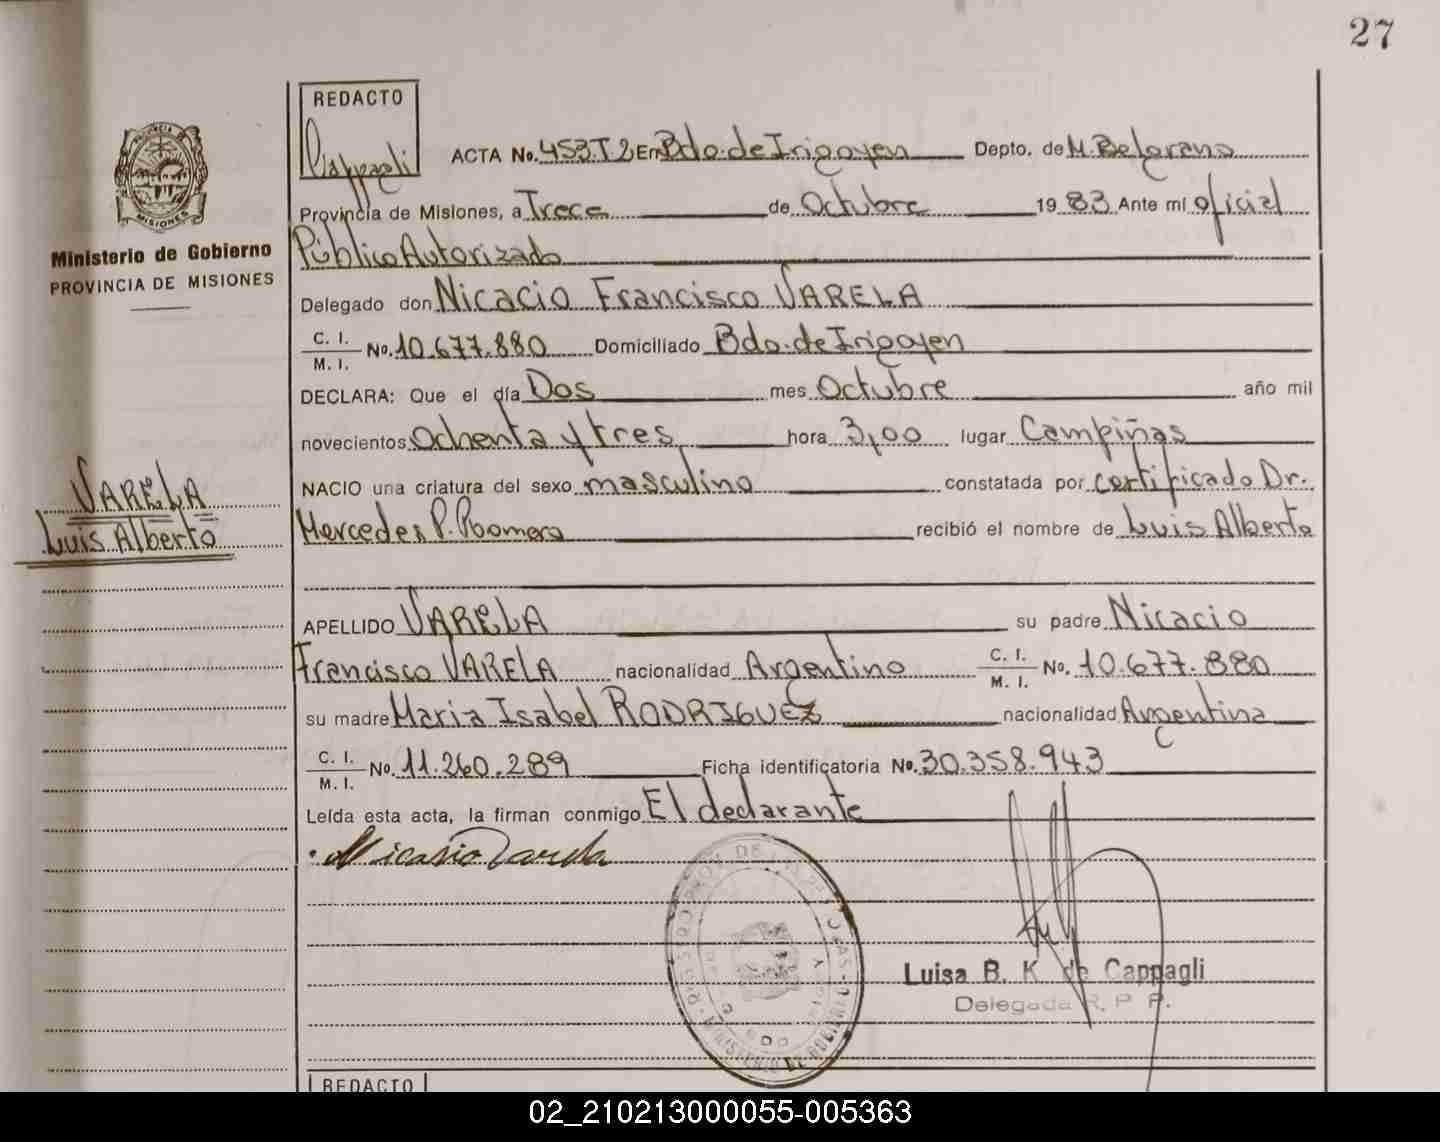 27
REDACTO
Cappagli
ACTA No. 453.T2 En Bdo. de Irigoyen Depto. de M. Belgrano
Provincia de Misiones, a Trece de Octubre 19 83 Ante mí oficial
Público Autorizado
Delegado don Nicacio Francisco VARELA
C. I.
M. I. No. 10.677.880 Domiciliado Bdo. de Irigoyen
DECLARA: Que el día Dos mes Octubre año mil
novecientos Ochenta y tres hora 3,00 lugar Campiñas
NACIO una criatura del sexo masculino constatada por certificado Dr.
Mercedes P. Romero recibió el nombre de Luis Alberto
APELLIDO VARELA su padre Nicacio
Francisco VARELA nacionalidad Argentino C. I. M. I. No. 10.677.880
su madre Maria Isabel RODRIGUEZ nacionalidad Argentina
C. I.
M. I. No. 11.260.289 Ficha identificatoria No. 30.358.943
Leída esta acta, la firman conmigo El declarante
Nicasio Varela
Luisa B. K. de Cappagli
Delegada R. P. P.
PROVINCIA DE
MISIONES
Ministerio de Gobierno
PROVINCIA DE MISIONES
VARELA
Luis Alberto
MINISTERIO DE GOBIERNO
REDACTO
02_210213000055-005363